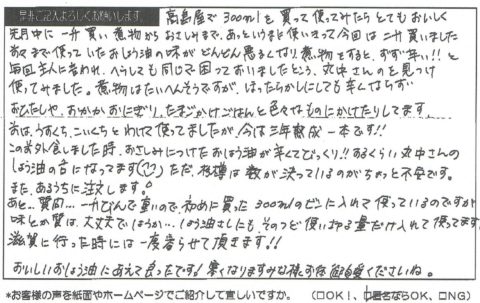 是非ご記入よろしくお願いします。
高島屋で300mlを買って使ってみたらとてもおいしく
先月中に一升買い煮物からおさしみまで、あっというまに使いきって今回は二升買いました
今まで使っていたおしょう油の味がどんどん悪くなり煮物をすると、すぐ辛い!!と
毎回主人に言われ、へらしても同じで困っておりましたところ、丸中さんのを見つけ
使ってみました。煮物はたいへんそうですが、ほったらかしにしても辛くならず
おひたしや、おかかおにぎり、たまごかけごはんと色々なものにかけたりしてます。
前は、うすくち、こいくちとわけて使ってましたが、今は三年熟成一本です!!
この前外食しました時、おさしみにつけたおしょう油が辛くてびっくり!!あるくらい丸中さんの
しょう油の舌になってます ただ、杉樽は数が決っているのがちょっと不安です。
また、あるうちに注文します。
あと…質問…一升びんで重いので、初めに買った300mlのビンに入れて使っているのですが
味とか質は、大丈夫でしょうか…しょう油さしにも、そのつど使い切る量だけ入れて使ってます
滋賀に行った時には一度寄らせて頂きます!!
おいしいおしょう油にあえて良かったです!寒くなりますみな様お体御自愛くださいね。
*お客様の声を紙面やホームページでご紹介して宜しいですか。 (□OK、□匿名ならOK、□NG)